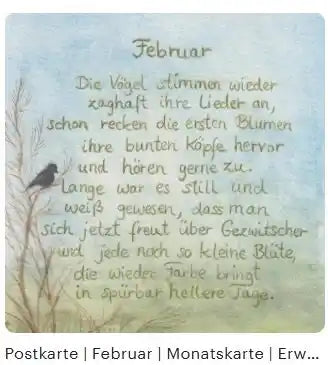 Februar
Die Vögel stimmen wieder
zaghaft ihre Lieder an,
schon recken die ersten Blumen
ihre bunten Köpfe hervor
und hören gerne zu.
Lange war es still und
weiß gewesen, dass man
sich jetzt freut über Gezwitscher
und jede noch so kleine Blüte,
die wieder Farbe bringt
in spürbar hellere Tage.
Postkarte | Februar | Monatskarte | Erw...